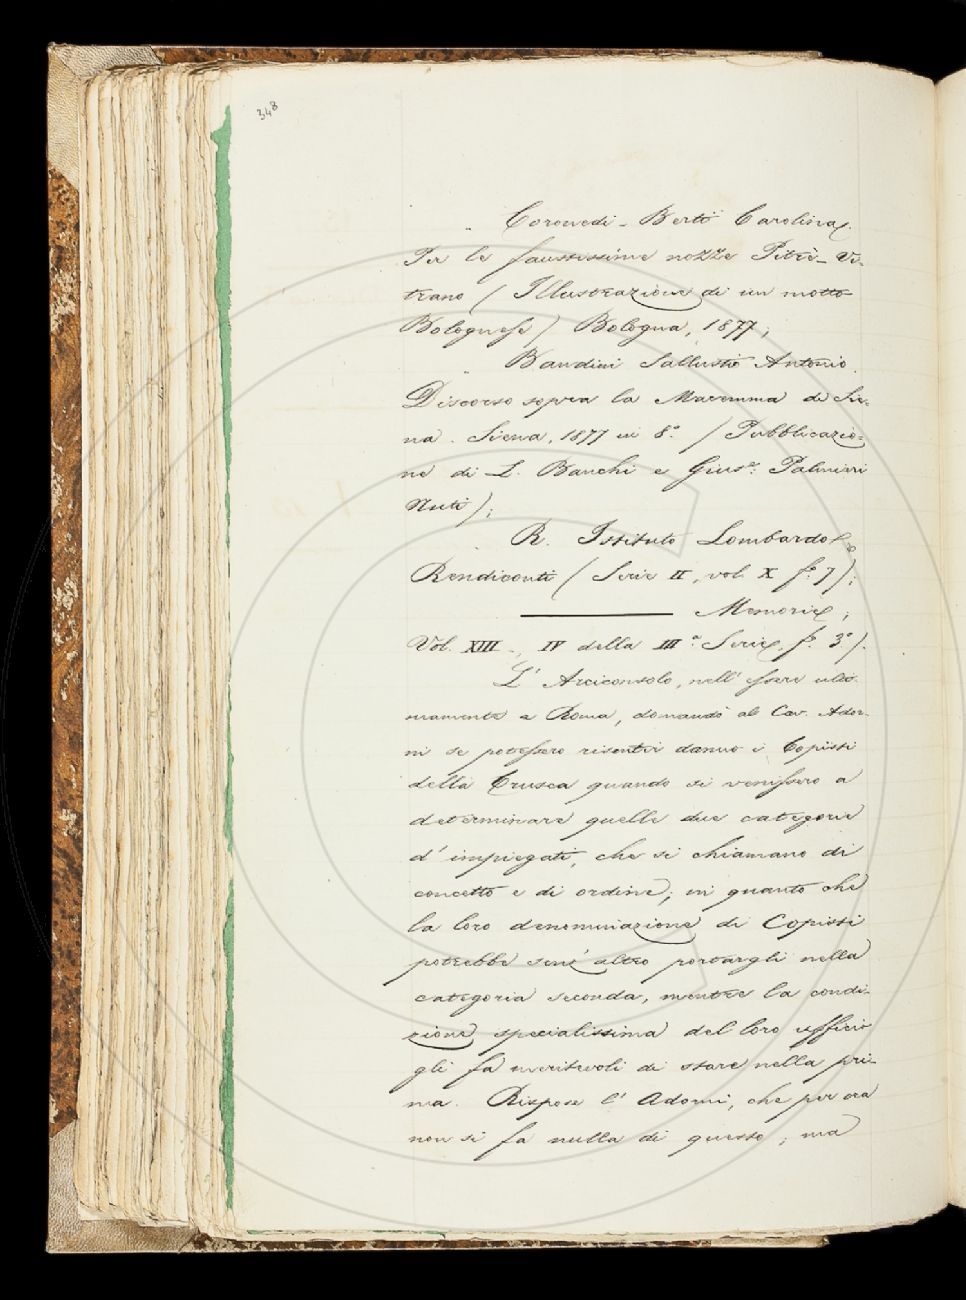 348
Coronedi-Berti Carolina.
Per le faustissime nozze Pitrè-Vi-
trano (Illustrazione di un motto
Bolognese) Bologna, 1877;
Bandini Sallustio Antonio.
Discorso sopra la Maremma di Sie-
na. Siena, 1877 in 8.º (Pubblicazio-
ne di L. Banchi e Gius.e Palmieri
Nuti);
R. Istituto Lombardo
Rendiconti (Serie II, vol. X f.º 7);
——— Memorie;
Vol. XIII -, IV della III.a Serie, f.º 3º).
L' Arciconsolo, nell' essere ulti-
mamente a Roma, domandò al Cav. Ador-
ni se potessero risentir danno i Copisti
della Crusca quando si venissero a
determinare quelle due categorie
d' impiegati, che si chiamano di
concetto e di ordine; in quanto che
la loro denominazione di Copisti
potrebbe senz' altro portargli nella
categoria seconda, mentre la condi-
zione specialissima del loro ufficio
gli fa meritevoli di stare nella pri-
ma. Rispose l' Adorni, che per ora
non si fa nulla di questo; ma